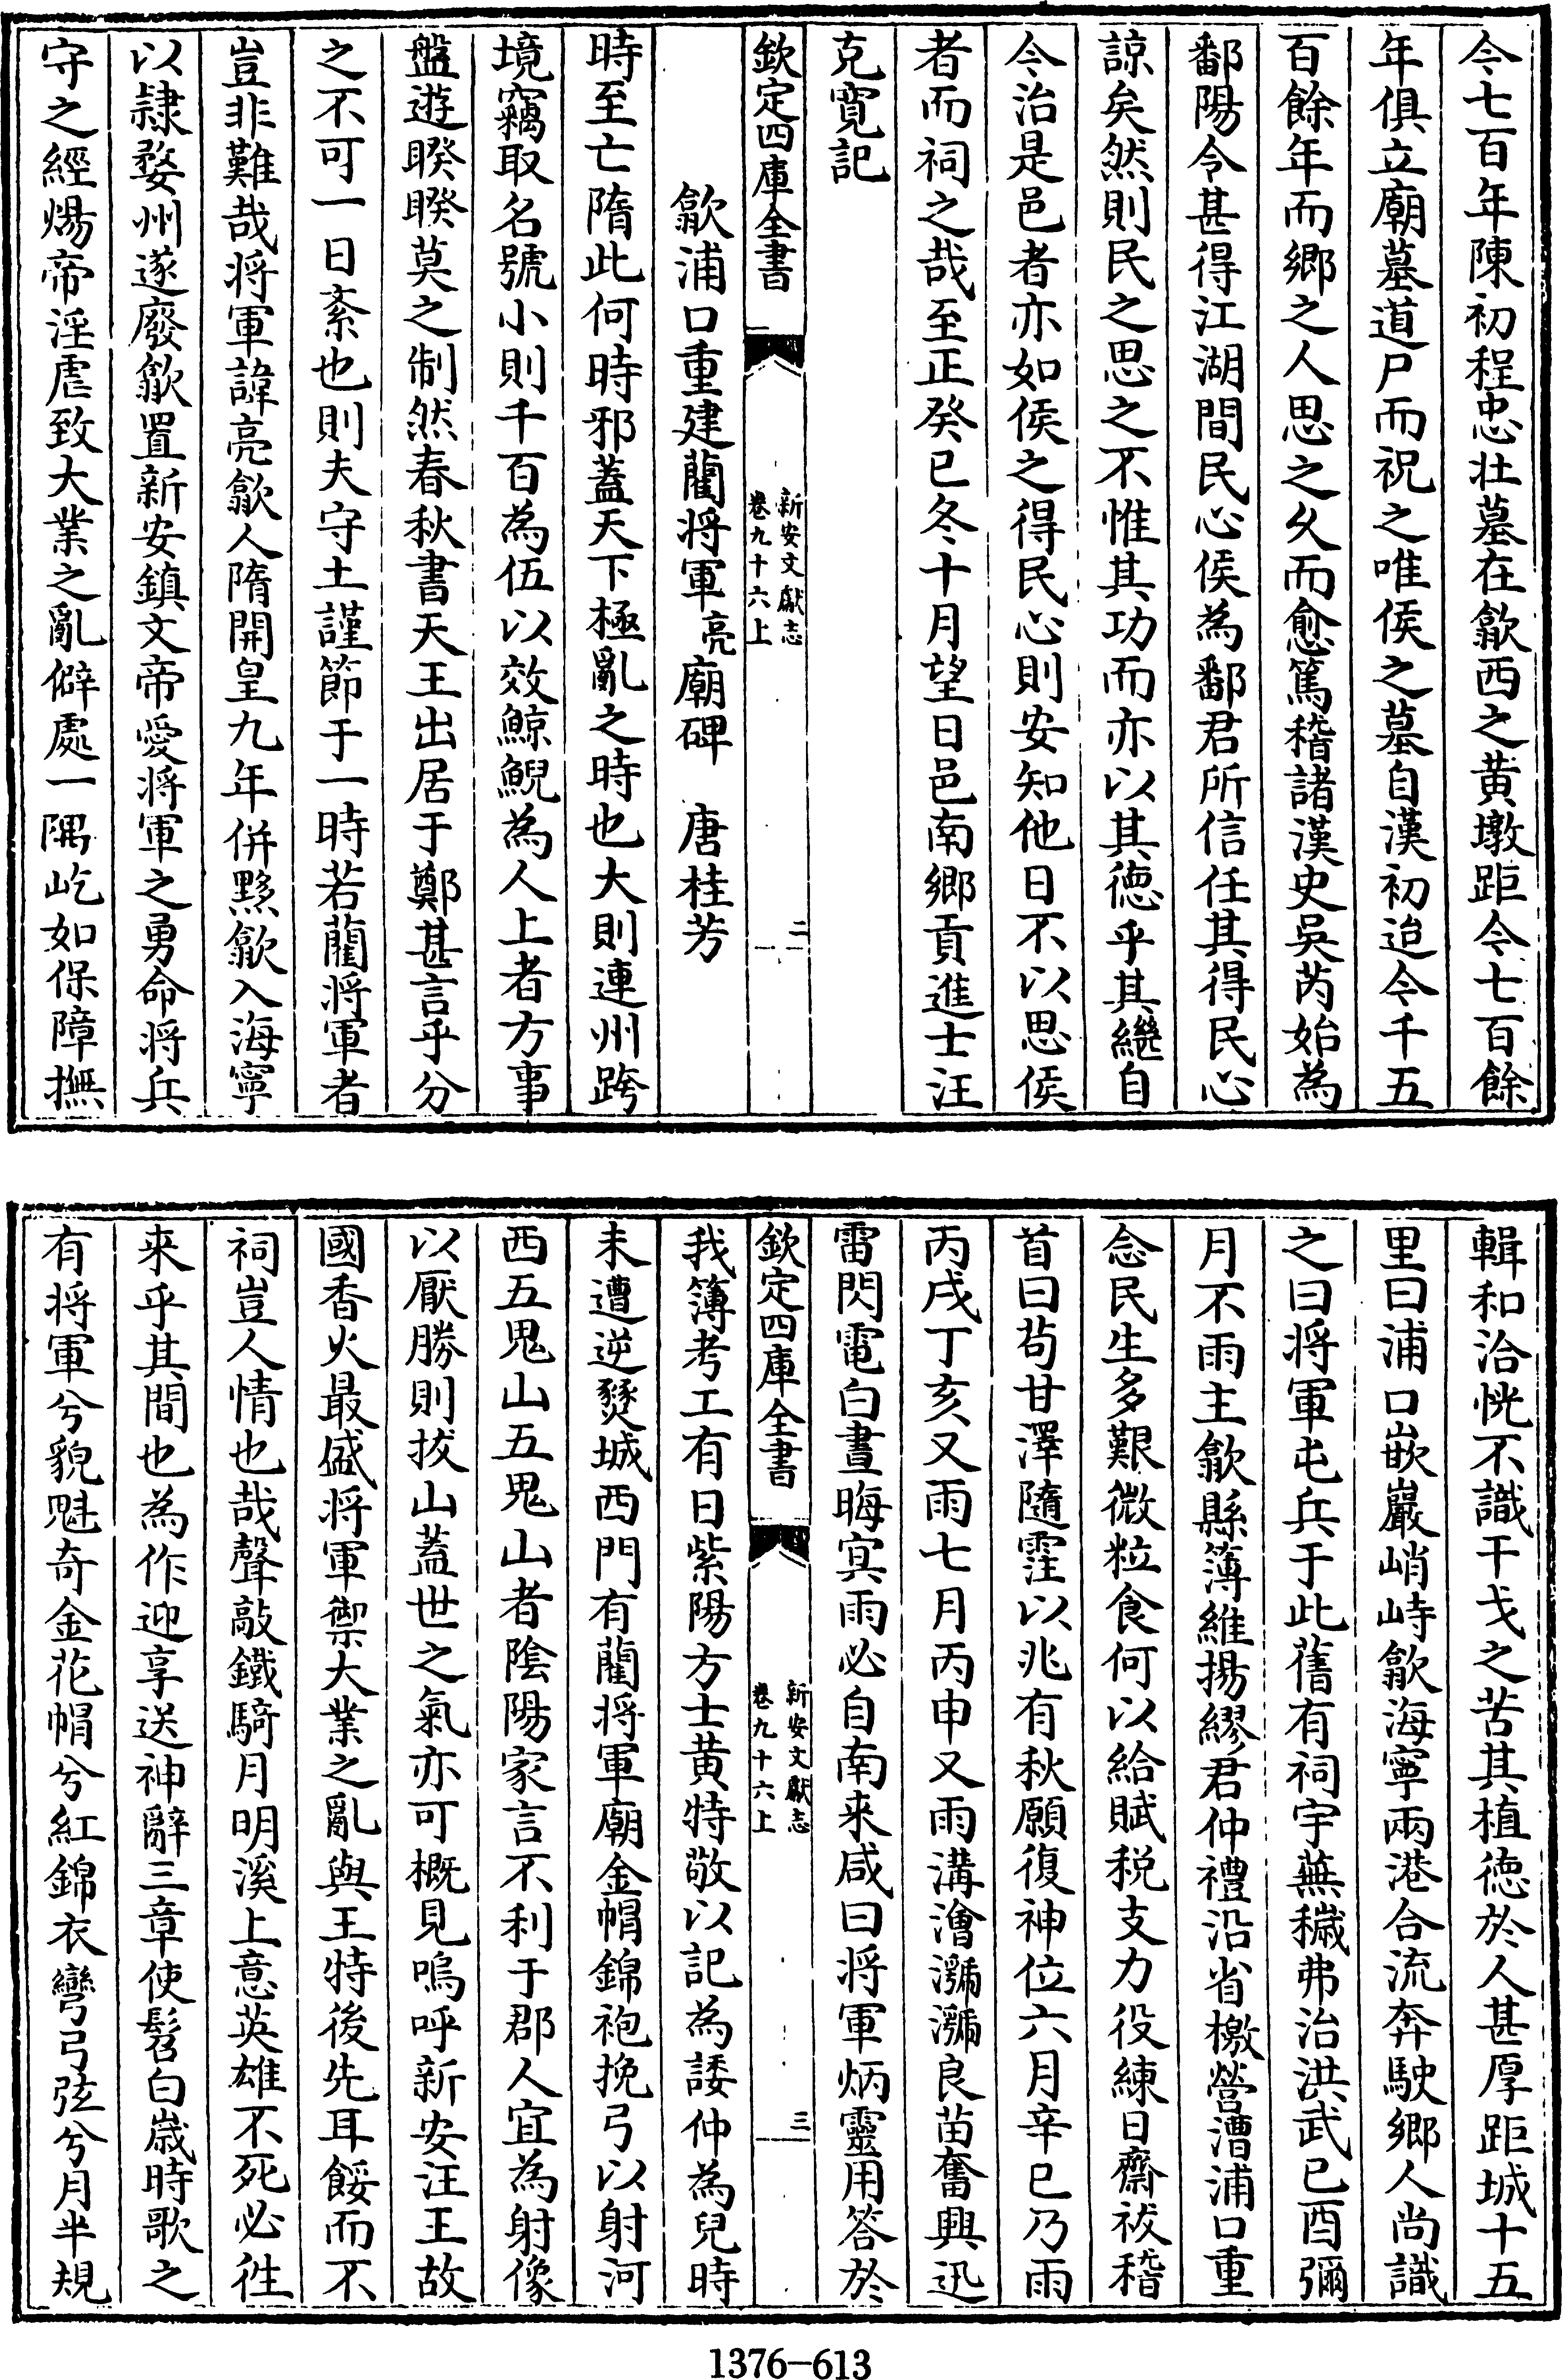 今七百年陳初程忠壮墓在歙西之黄墩距今七百餘
年俱立廟墓道尸而祝之唯侯之墓自漢初迨今千五
百餘年而鄉之人思之久而愈篤稽諸漢史吳芮始為
鄱陽令甚得江湖間民心侯為鄱君所信任其得民心
諒矣然則民之思之不惟其功而亦以其德乎其繼自
今治是邑者亦如侯之得民心則安知他日不以思侯
者而祠之哉至正癸巳冬十月望日邑南鄉貢進士汪
克寛記
欽定四庫全書
新安文獻志
卷九十六上
二
歙浦口重建藺將軍亮廟碑　唐桂芳
時至亡隋此何時邪蓋天下極亂之時也大則連州跨
境竊取名號小則千百為伍以效鯨鯢為人上者方事
盤遊睽睽莫之制然春秋書天王出居于鄭甚言乎分
之不可一日紊也則夫守土謹節于一時若藺將軍者
豈非難哉將軍諱亮歙人隋開皇九年併黟歙入海寧
以隷婺州遂廢歙置新安鎮文帝愛將軍之勇命將兵
守之經煬帝淫虐致大業之亂僻處一隅屹如保障撫
輯和洽恍不識干戈之苦其植德於人甚厚距城十五
里曰浦口嵌巖峭峙歙海寧兩港合流奔駛鄉人尚識
之曰將軍屯兵于此舊有祠宇蕪穢弗治洪武己酉彌
月不雨主歙縣簿維揚繆君仲禮沿省檄營漕浦口重
念民生多艱微粒食何以給賦税支力役練日齋祓稽
首曰茍甘澤隨霔以兆有秋願復神位六月辛巳乃雨
丙戌丁亥又雨七月丙申又雨溝澮㶁㶁良苗奮興迅
雷閃電白晝晦㝠雨必自南来咸曰将軍炳靈用答於
欽定四庫全書
新安文獻志
卷九十六上
三
我簿考工有日紫陽方士黄特敬以記為諉仲為兒時
未遭逆燹城西門有藺將軍廟金帽錦袍挽弓以射河
西五鬼山五鬼山者陰陽家言不利于郡人宜為射像
以厭勝則拔山蓋世之氣亦可概見嗚呼新安汪王故
國香火最盛將軍禦大業之亂與王特後先耳餒而不
祠豈人情也哉聲敲鐵騎月明溪上意英雄不死必徃
来乎其間也為作迎享送神辭三章使髫白歳時歌之
有將軍兮貌魁奇金花帽兮紅錦衣彎弓弦兮月半規
1376-613